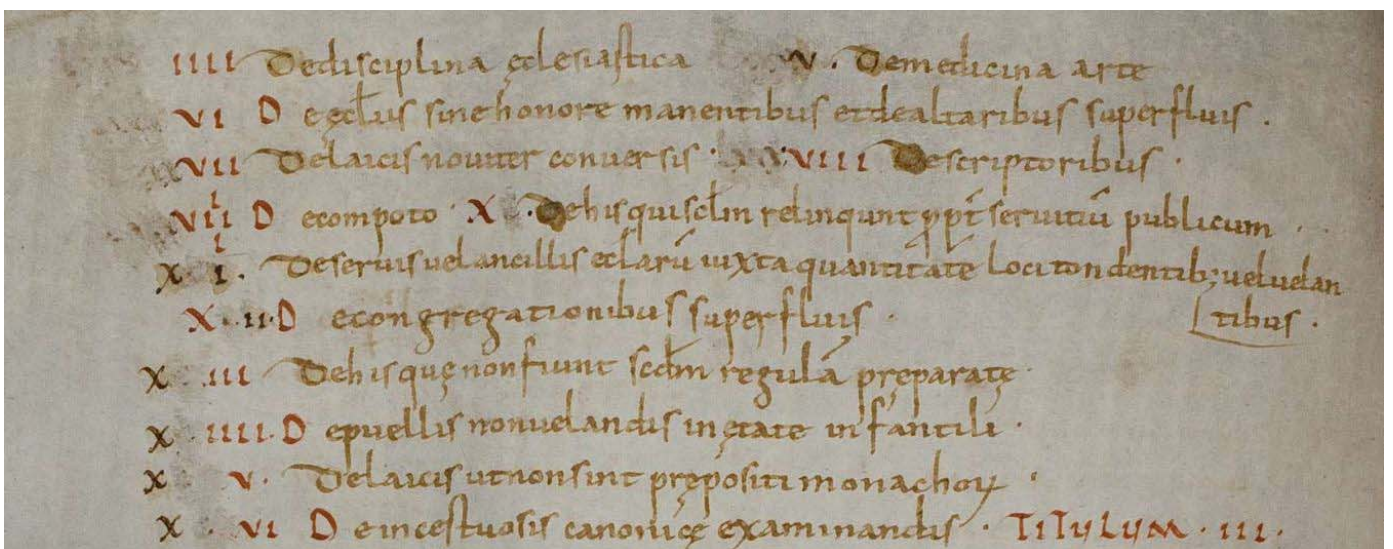 IIII Dedisciplina ęclesiastica V. Demedicina arte
VI D eęclīus sinehonore manentibus etdealtaribus superfluis.
VII Delaicis noviter conversis · VIII Descriptoribus ·
VIIII D ecompoto · X · Dehis qui sclm relinqunt ꝓpt̄ servitiū publicum ·
X I. Deservis vel ancillis eclarū iuxta quantitatē loci tondentib; velvelan
tibus ·
X · II · D econgregationibus superfluis ·
X · III Dehis quę nonfiunt scdm regulā pręparatę ·
X · IIII · D epuellis nonvelandis in ętate infantili ·
X V. Delaicis utnonsint prępositi monachoꝝ ·
X · VI D eincestuosis canonicę examinandis · TITULUM · III ·